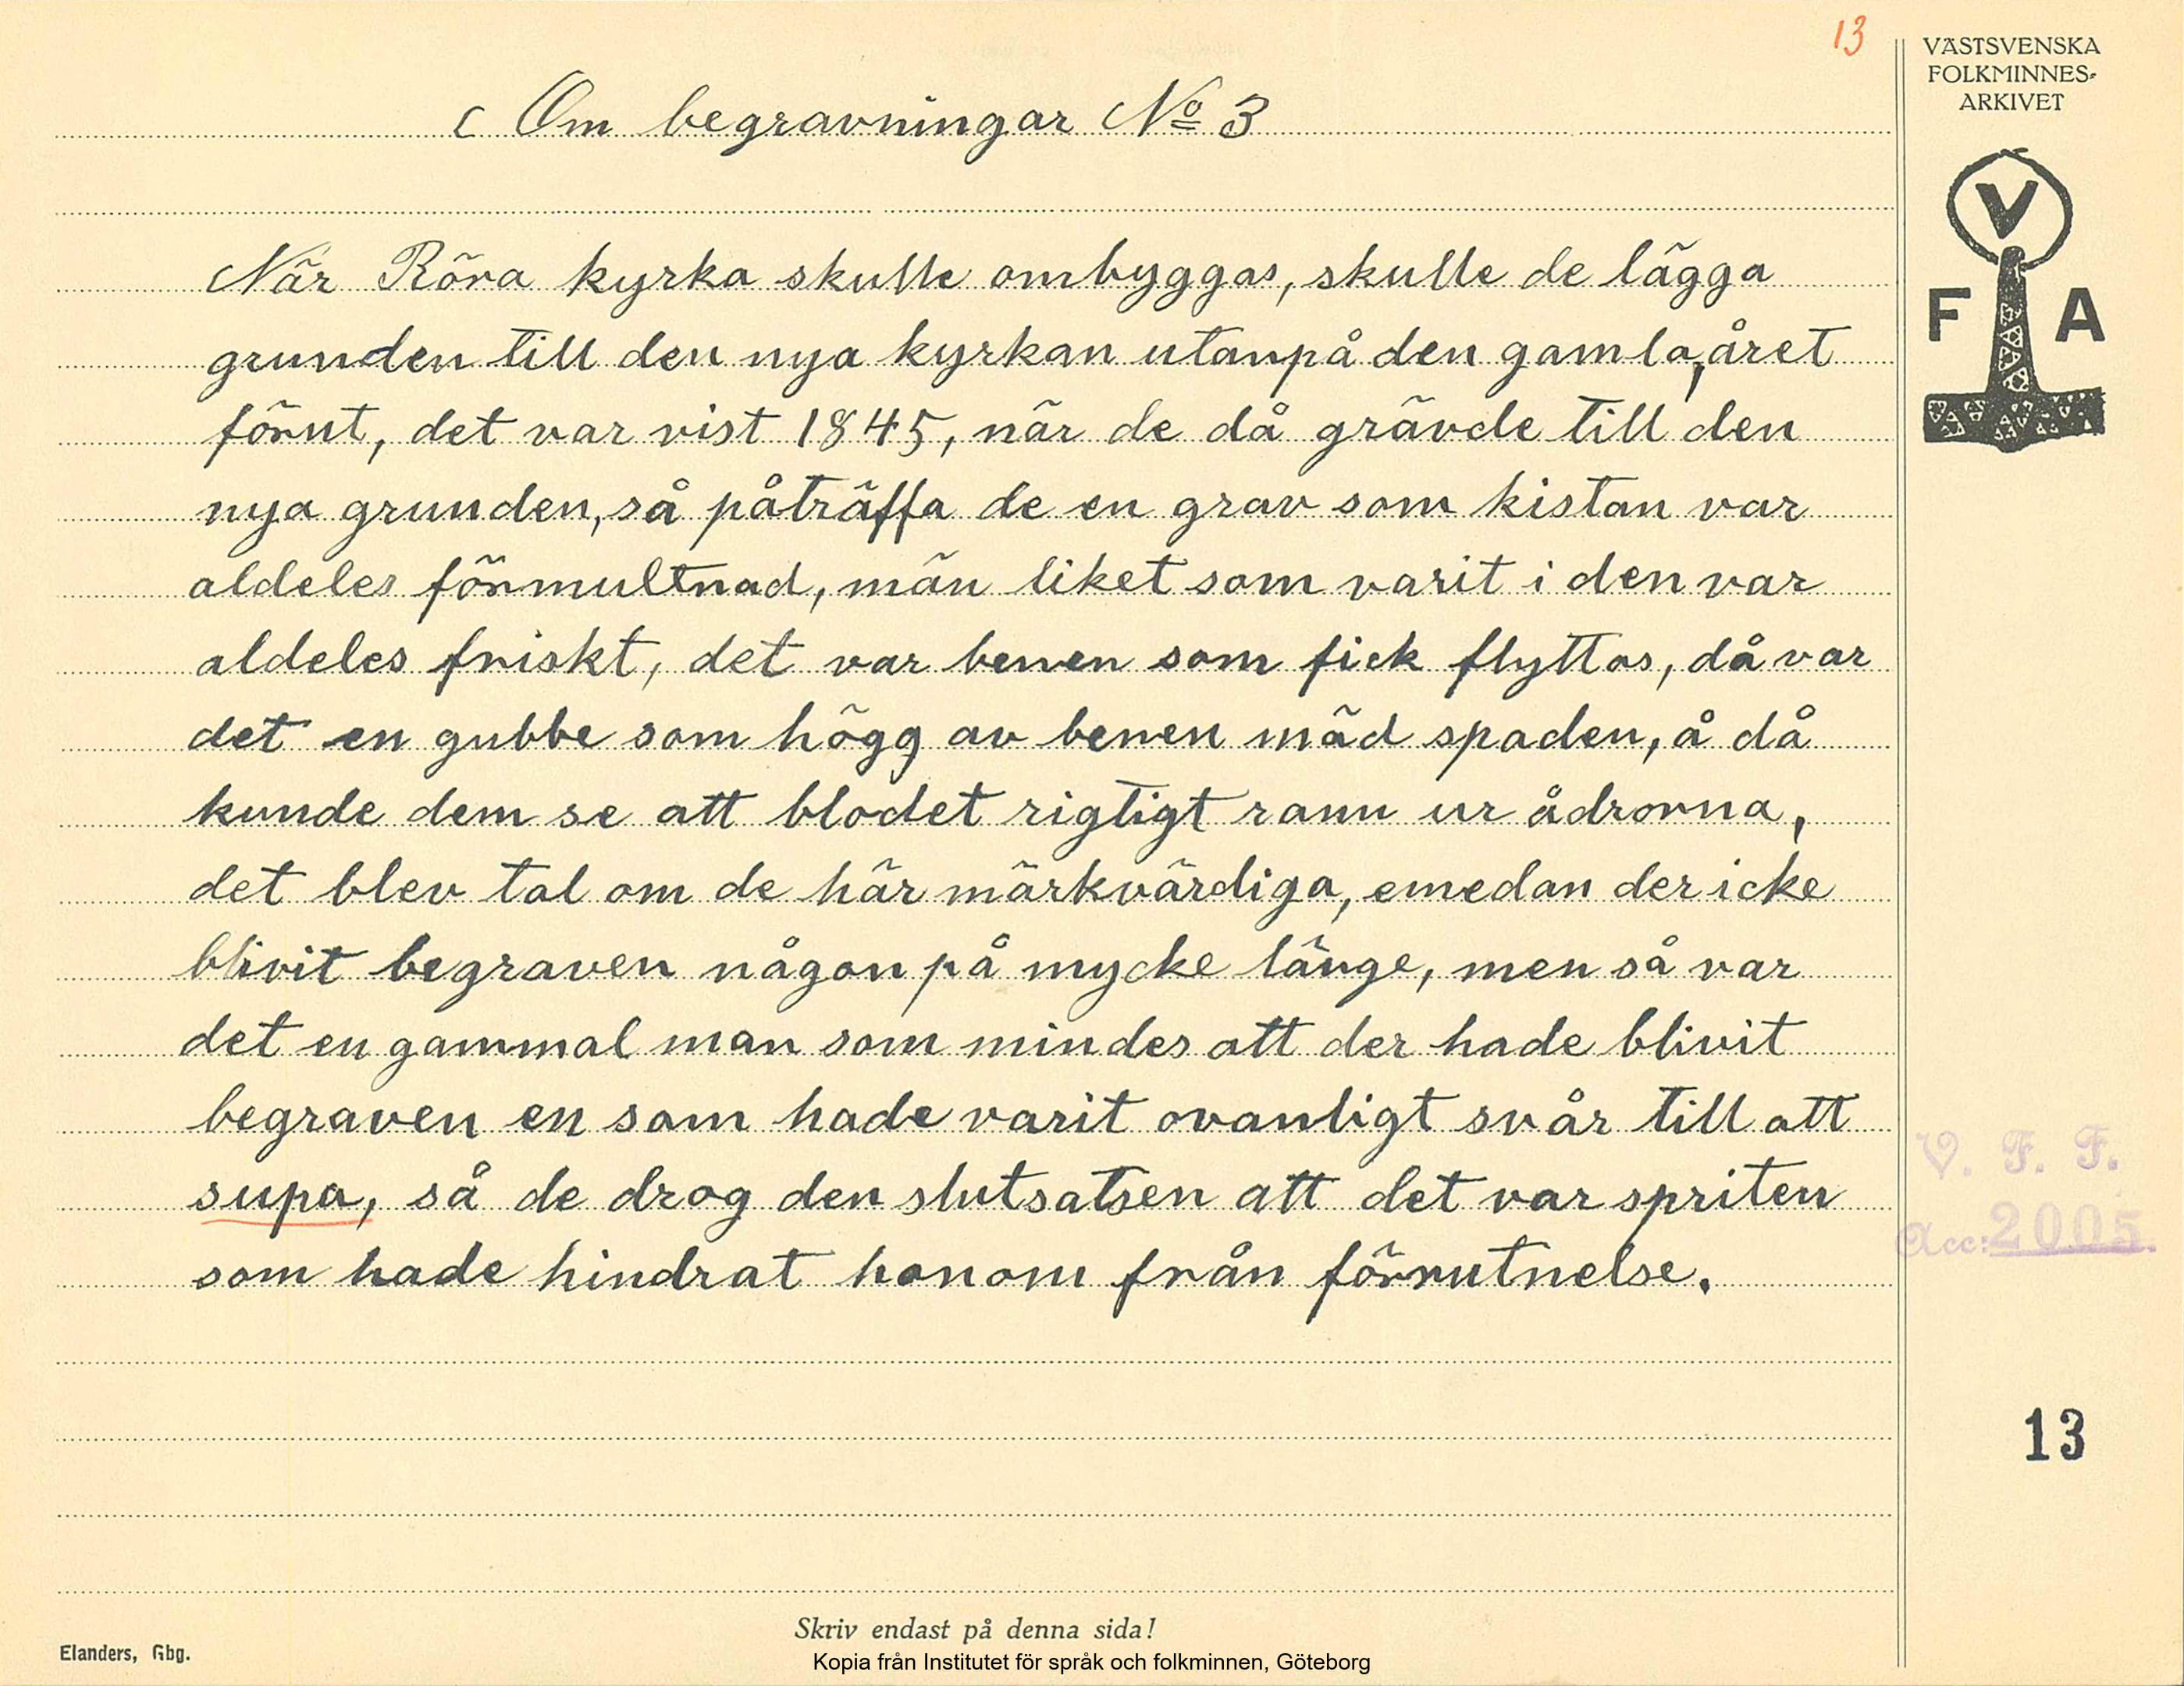 13
VÄSTSVENSKA
FOLKMINNES-
ARKIVET
V
F A
c Om begravningar No 3
När Röra kyrka skulle ombyggas, skulle de lägga
grunden till den nya kyrkan utanpå den gamla, året
förut, det var vist 1845, när de då grävde till den
nya grunden, så påträffa de en grav som kistan var
aldeles förmultnad, män liket som varit i den var
aldeles friskt, det var benen som fick flyttas, då var
det en gubbe som högg av benen mäd spaden, å då
kunde dem se att blodet rigtigt rann ur ådrorna,
det blev tal om de här märkvärdiga, emedan der icke
blivit begraven någon på mycke länge, men så var
det en gammal man som mindes att der hade blivit
begraven en som hade varit ovanligt svår till att
supa, så de drog den slutsatsen att det var spriten
som hade hindrat honom från förrutnelse.
V. F. F.
Acc: 2005.
13
Skriv endast på denna sida!
Elanders, Gbg.
Kopia från Institutet för språk och folkminnen, Göteborg